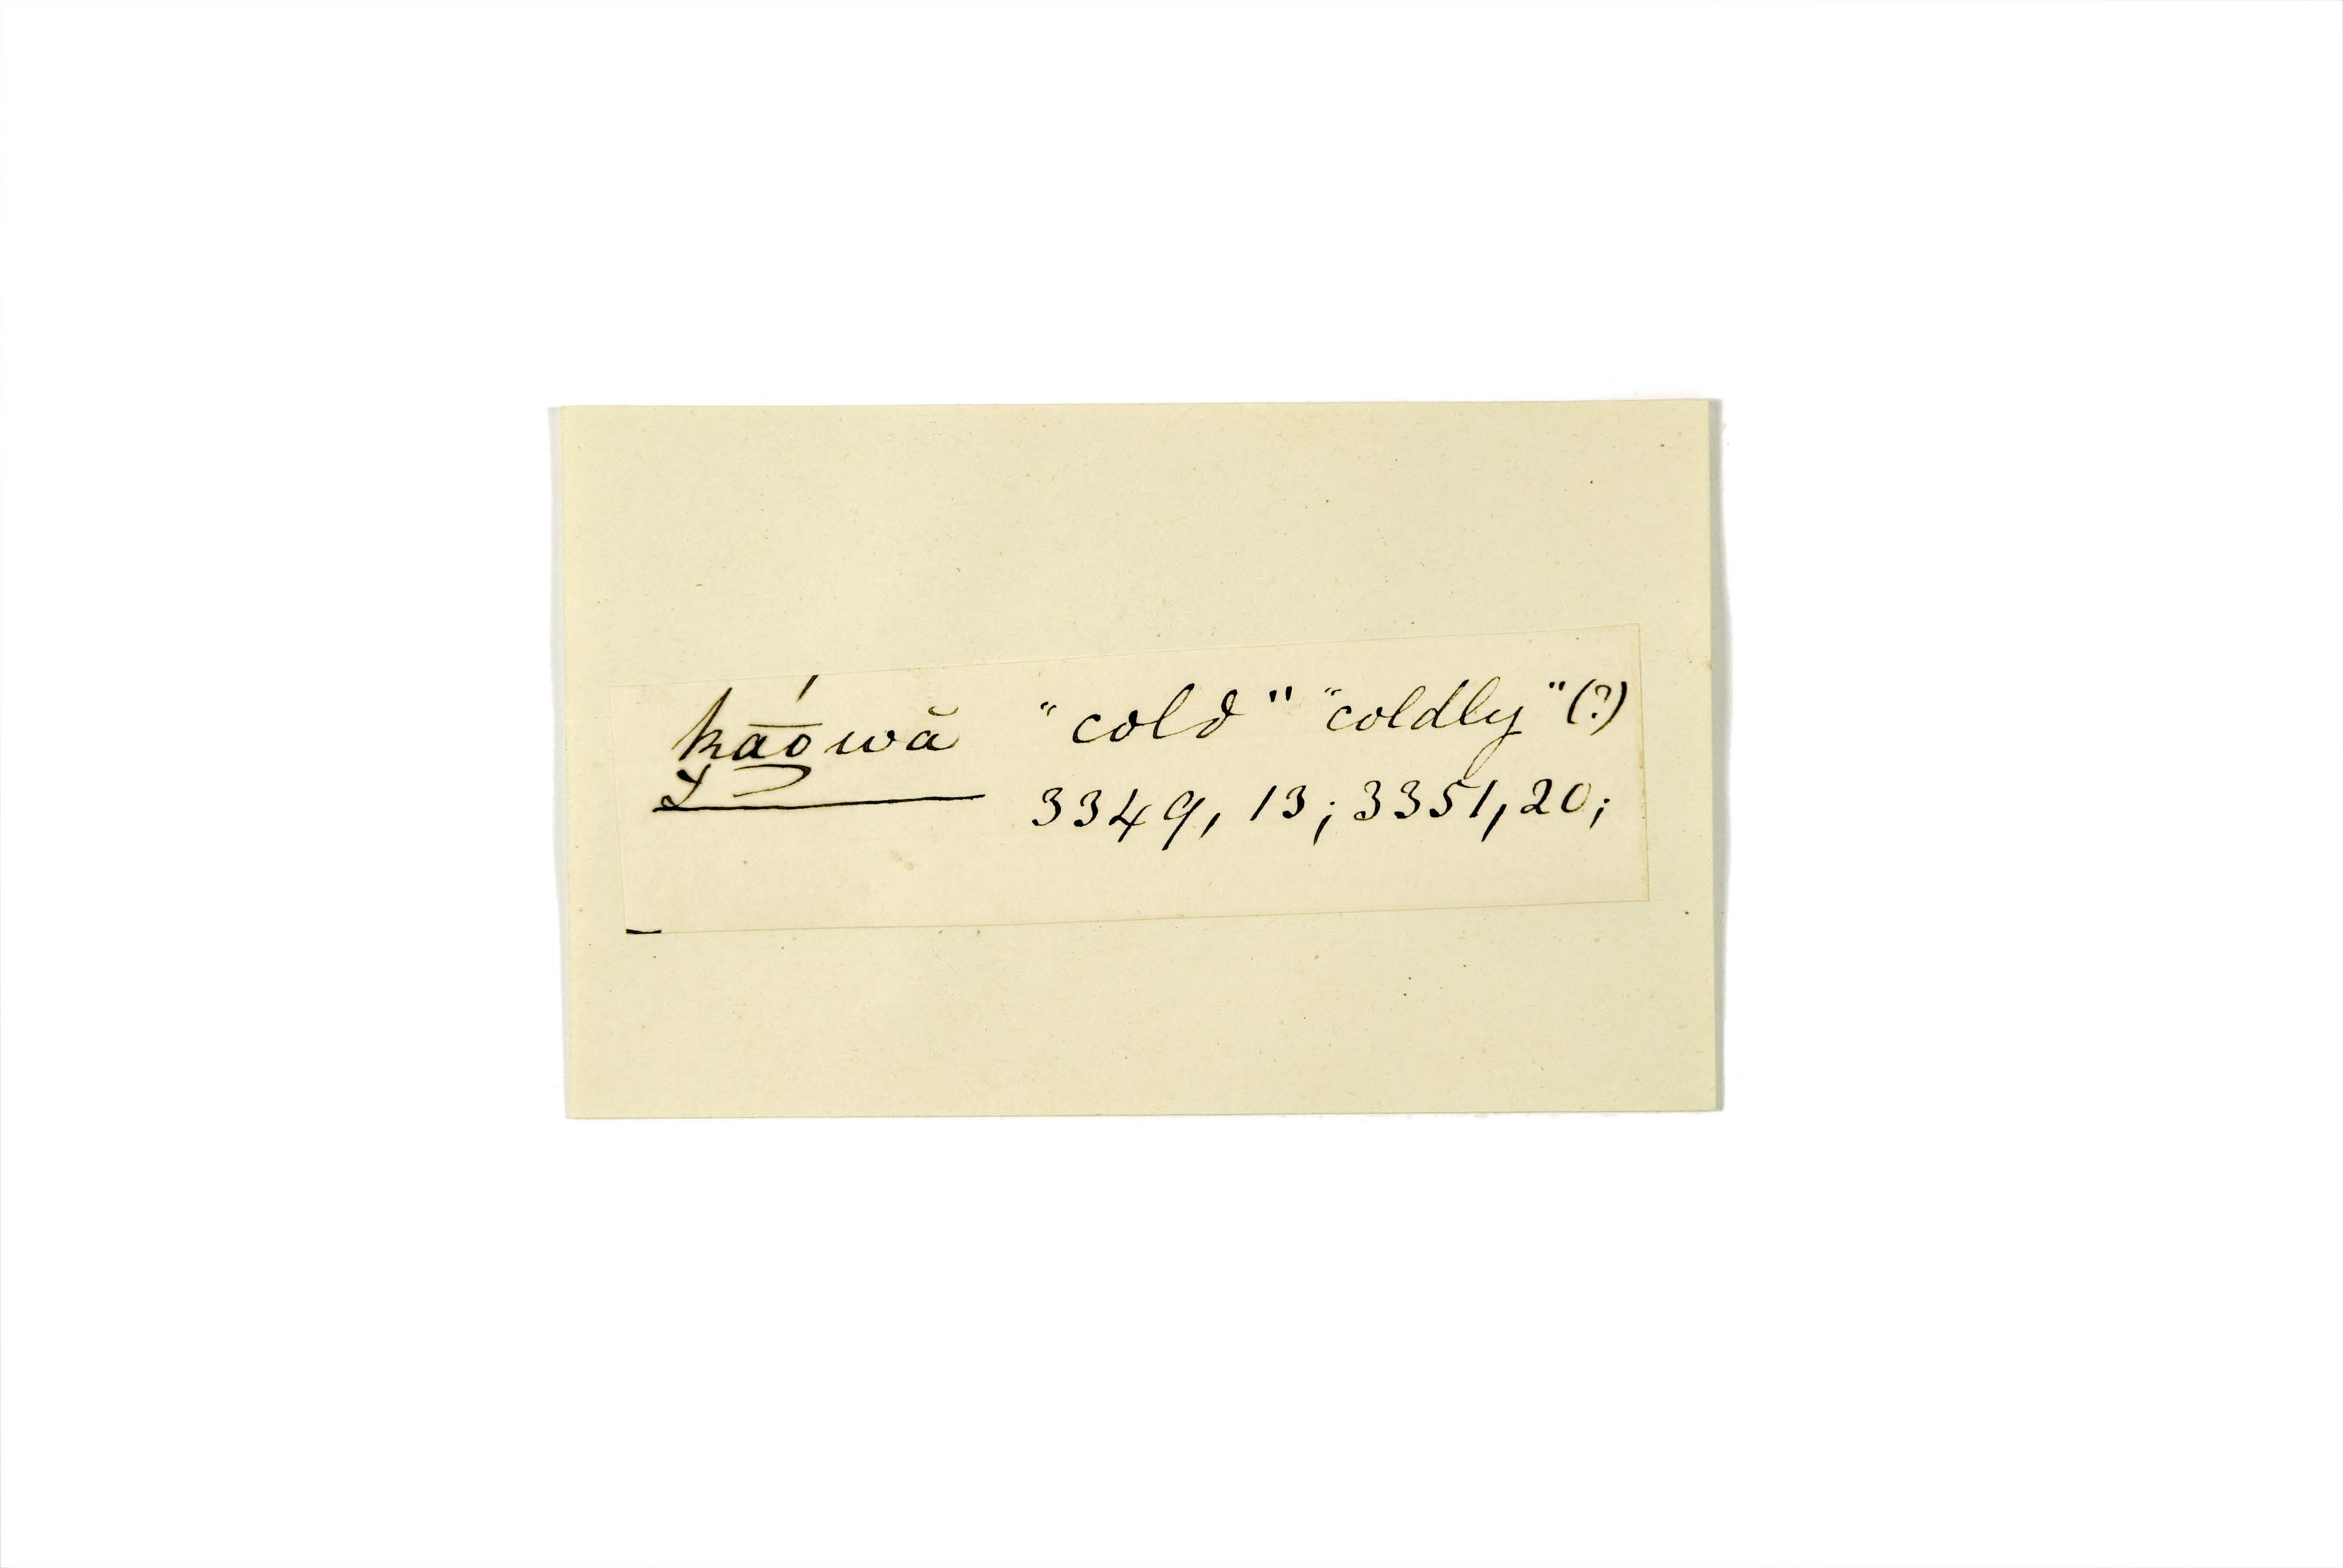 k̯āówă "cold" "coldly" (?)
3349, 13; 3351, 20;